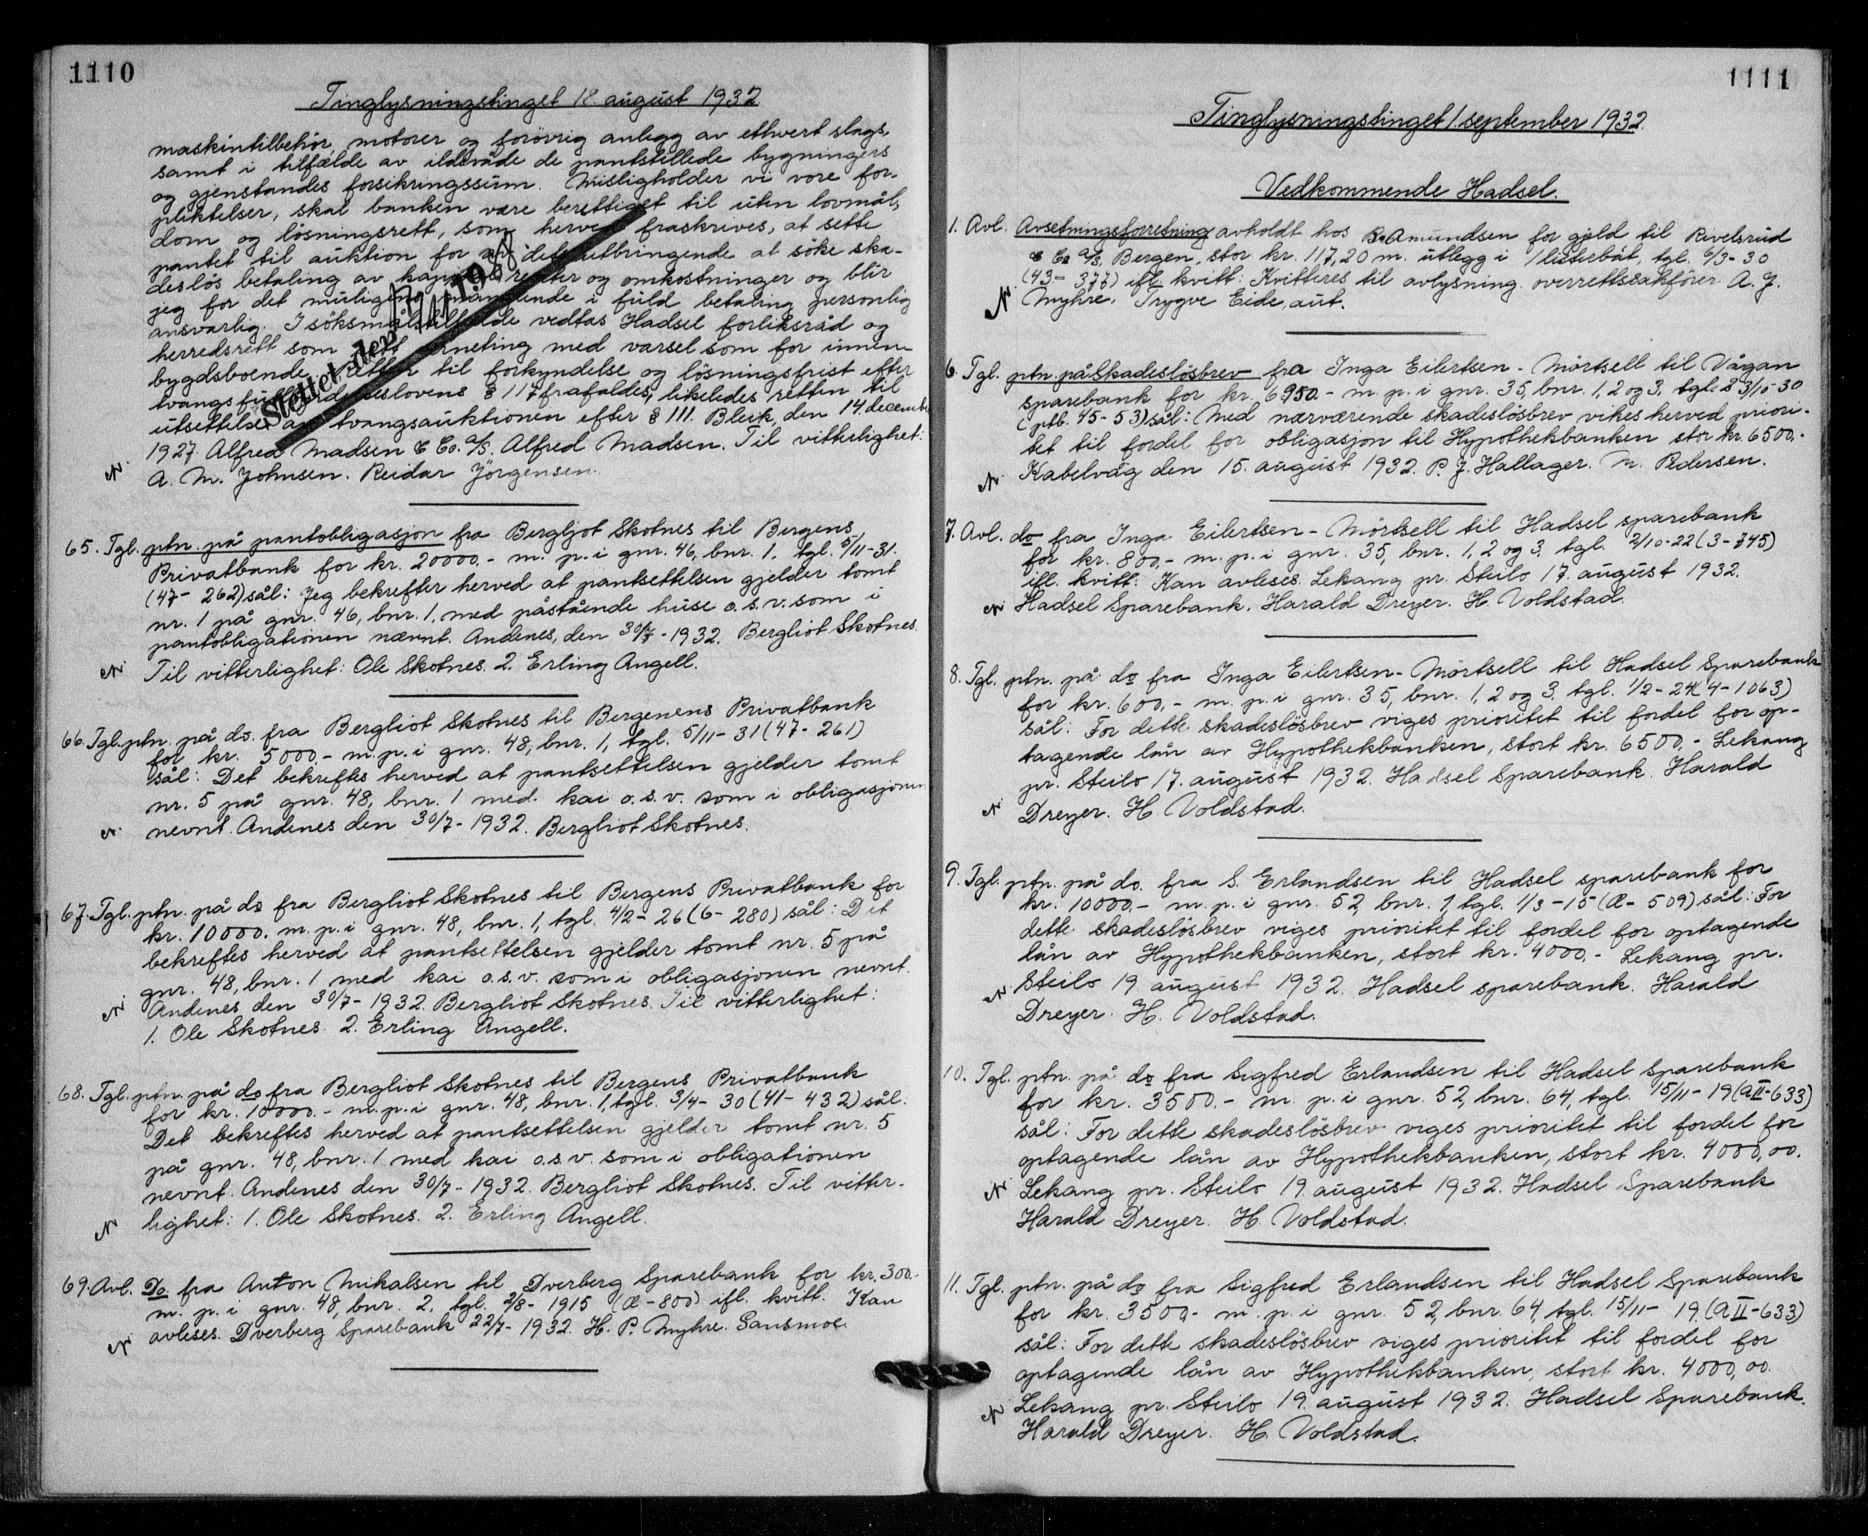 1110
Tinglysningstinget 18. august 1932
maskintilbehör, motorer og forövrig anlegg av ethvert slags,
samt i tilfælde av ildsvåde de pantstillede bygningers
og gjenstandes forsikringssum. Misligholder vi vore for-
pliktelser, skal banken være berettiget til uten lovmål,
dom og lösningsrett, som herved fraskrives, at sette
pantet til auktion for an det utbringende at söke ska-
deslös betaling av kapital renter og omkostninger og blir
jeg for det muligens manglende i fuld betaling personlig
ansvarlig. I söksmålstilfælde vedtas Hadsel forliksråd og
herredsrett som rett verneting med varsel som for innen-
bygdsboende. Retten til forkyndelse og lösningsfrist efter
tvangsfuldbyrdelseslovens § 117 frafaldes, likeledes retten til
utsettelse av tvangsauktionen efter § 111. Bleik, den 14 decemb
1927. Alfred Madsen & Co. A/S. Alfred Madsen. Til vitterlighet:
N. A. M. Johnsen. Reidar Jörgensen.
Slettet den 1988
65. Tgl. ptn. på pantobligasjon fra Bergljot Skotnes til Bergens
Privatbank for kr. 20000.- m. p. i gnr. 46, bnr. 1, tgl. 5/11-31.
(47- 262) sål: Jeg bekrefter herved at pantsettelsen gjelder tomt
nr. 1 på gnr. 46, bnr. 1, med påstående huse o.s.v. som i
pantobligationen nævnt. Andenes, den 30/7-1932. Bergliot Skotnes.
N. Til vitterlighet: Ole Skotnes. 2. Erling Angell.
66. Tgl. ptn. på do. fra Bergliot Skotnes til Bergenens Privatbank
for kr. 5000.- m. p. i gnr. 48, bnr. 1, tgl. 5/11-31 (47- 261)
sål: Det bekreftes herved at pantsettelsen gjelder tomt
nr. 5 på gnr. 48, bnr. 1 med kai o.s.v. som i obligasjonen
N. nevnt. Andenes den 30/7-1932. Bergliot Skotnes.
67. Tgl. ptn. på do fra Bergliot Skotnes til Bergens Privatbank for
kr. 10000. m. p. i gnr. 48, bnr. 1, tgl. 4/2-26 (6- 280) sål: Det
bekreftes herved at pantsettelsen gjelder tomt nr. 5 på
gnr. 48, bnr. 1 med kai o.s.v. som i obligasjonen nevnt.
N Andenes den 30/7-1932. Bergliot Skotnes. Til vitterlighet:
1. Ole Skotnes. 2. Erling Angell.
68. Tgl. ptn. på do fra Bergliot Skotnes til Bergens Privatbank
for kr. 10000.- m. p. i gnr. 48, bnr. 1, tgl. 3/4-30 (41- 432) sål:
Det bekreftes herved at pantsettelsen gjelder tomt nr. 5
på gnr. 48, bnr. 1 med kai o.s.v. som i obligationen
nevnt. Andenes den 30/7-1932. Bergliot Skotnes. Til vitter-
N lighet: 1. Ole Skotnes. 2. Erling Angell.
69. Avl. Do. fra Anton Mikalsen til Dverberg Sparebank for kr. 300.-
m. p. i gnr. 48, bnr. 2, tgl. 2/8-1915 (Æ-800) ifl. kvitt. Kan
N avleses. Dverberg Sparebank 22/7-1932. H. P. Myhre. Sansmoe.
1111
Tinglysningstinget 1. september 1932.
Vedkommende Hadsel.
1. Avl. Avsetningsforretning avholdt hos B. Amundsen for gjeld til Rivelsrud
& Co. A/S, Bergen, stor kr. 117,20 m. utlegg i 1 lusterbåt, tgl. 6/3-30
(43- 377) ifl. kvitt: Kvitteres til avlysning. overrettssakförer A. J.
N. Myhre. Trygve Eide, aut.
6. Tgl. ptn på Skadeslösbrev fra Inga Eilertsen- Mörtsell til Vågan
sparebank for kr. 6950.- m. p. i gnr. 35, bnr. 1, 2 og 3, tgl. 3/10-30
(ptb. 45-53) sål: Med nærværende skadeslösbrev vikes herved priori-
tet til fordel for obligasjon til Hypothekbanken stor kr. 6500.-
N. Kabelvåg den 15. august 1932. P. J. Hallager. M. Pedersen.
7. Avl. do fra Inga Eilertsen- Mörtsell til Hadsel sparebank
for kr. 800,- m. p. i gnr. 35, bnr. 1, 2 og 3, tgl. 2/10-22 (3-745)
ifl. kvitt: Kan avleses. Lekang pr. Steilo 17. august 1932.
N Hadsel Sparebank. Harald Dreyer. H. Voldstad.
8. Tgl. ptn. på do fra Inga Eilertsen- Mörtsell til Hadsel Sparebank
for kr. 600,- m. p. i gnr. 35, bnr. 1, 2 og 3, tgl. 1/2-24 (4-1063)
sål: For dette skadeslösbrev viges prioritet til fordel for op-
tagende lån av Hypothekbanken, stort kr. 6500,- Lekang
pr. Steilo 17. august 1932. Hadsel Sparebank. Harald
N Dreyer. H. Voldstad.
9. Tgl. ptn. på do. fra S. Erlandsen til Hadsel sparebank for
kr. 10000.- m. p. i gnr. 52, bnr. 7, tgl. 1/3-15 (Æ- 509) sål: For
dette skadeslösbrev viges prioritet til fordel for optagende
lån av Hypothekbanken, stort kr. 4000.- Lekang pr.
N Steilo 19. august 1932. Hadsel sparebank. Harald
Dreyer. H. Voldstad.
10. Tgl. ptn. på do fra Sigfred Erlandsen til Hadsel Sparebank
for kr. 3500.- m. p. i gnr. 52, bnr. 64, tgl. 15/11-19 (AII-633)
sål: For dette skadeslösbrev viges prioritet til fordel for
optagende lån av Hypothekbanken, stort kr. 4000,00.
N Lekang pr. Steilo 19. august 1932. Hadsel Sparebank
Harald Dreyer. H. Voldstad.
11. Tgl. ptn. på do fra Sigfred Erlandsen til Hadsel Sparebank
for kr. 3500,- m. p. i gnr. 52, bnr. 64, tgl. 15/11-19. (AII-633)
sål: For dette skadeslösbrev viges prioritet til fordel for
optagende lån av Hypothekbanken, stort kr. 4000,00.
N Lekang pr. Steilo 19. august 1932. Hadsel Sparebank.
Harald Dreyer. H. Voldstad.